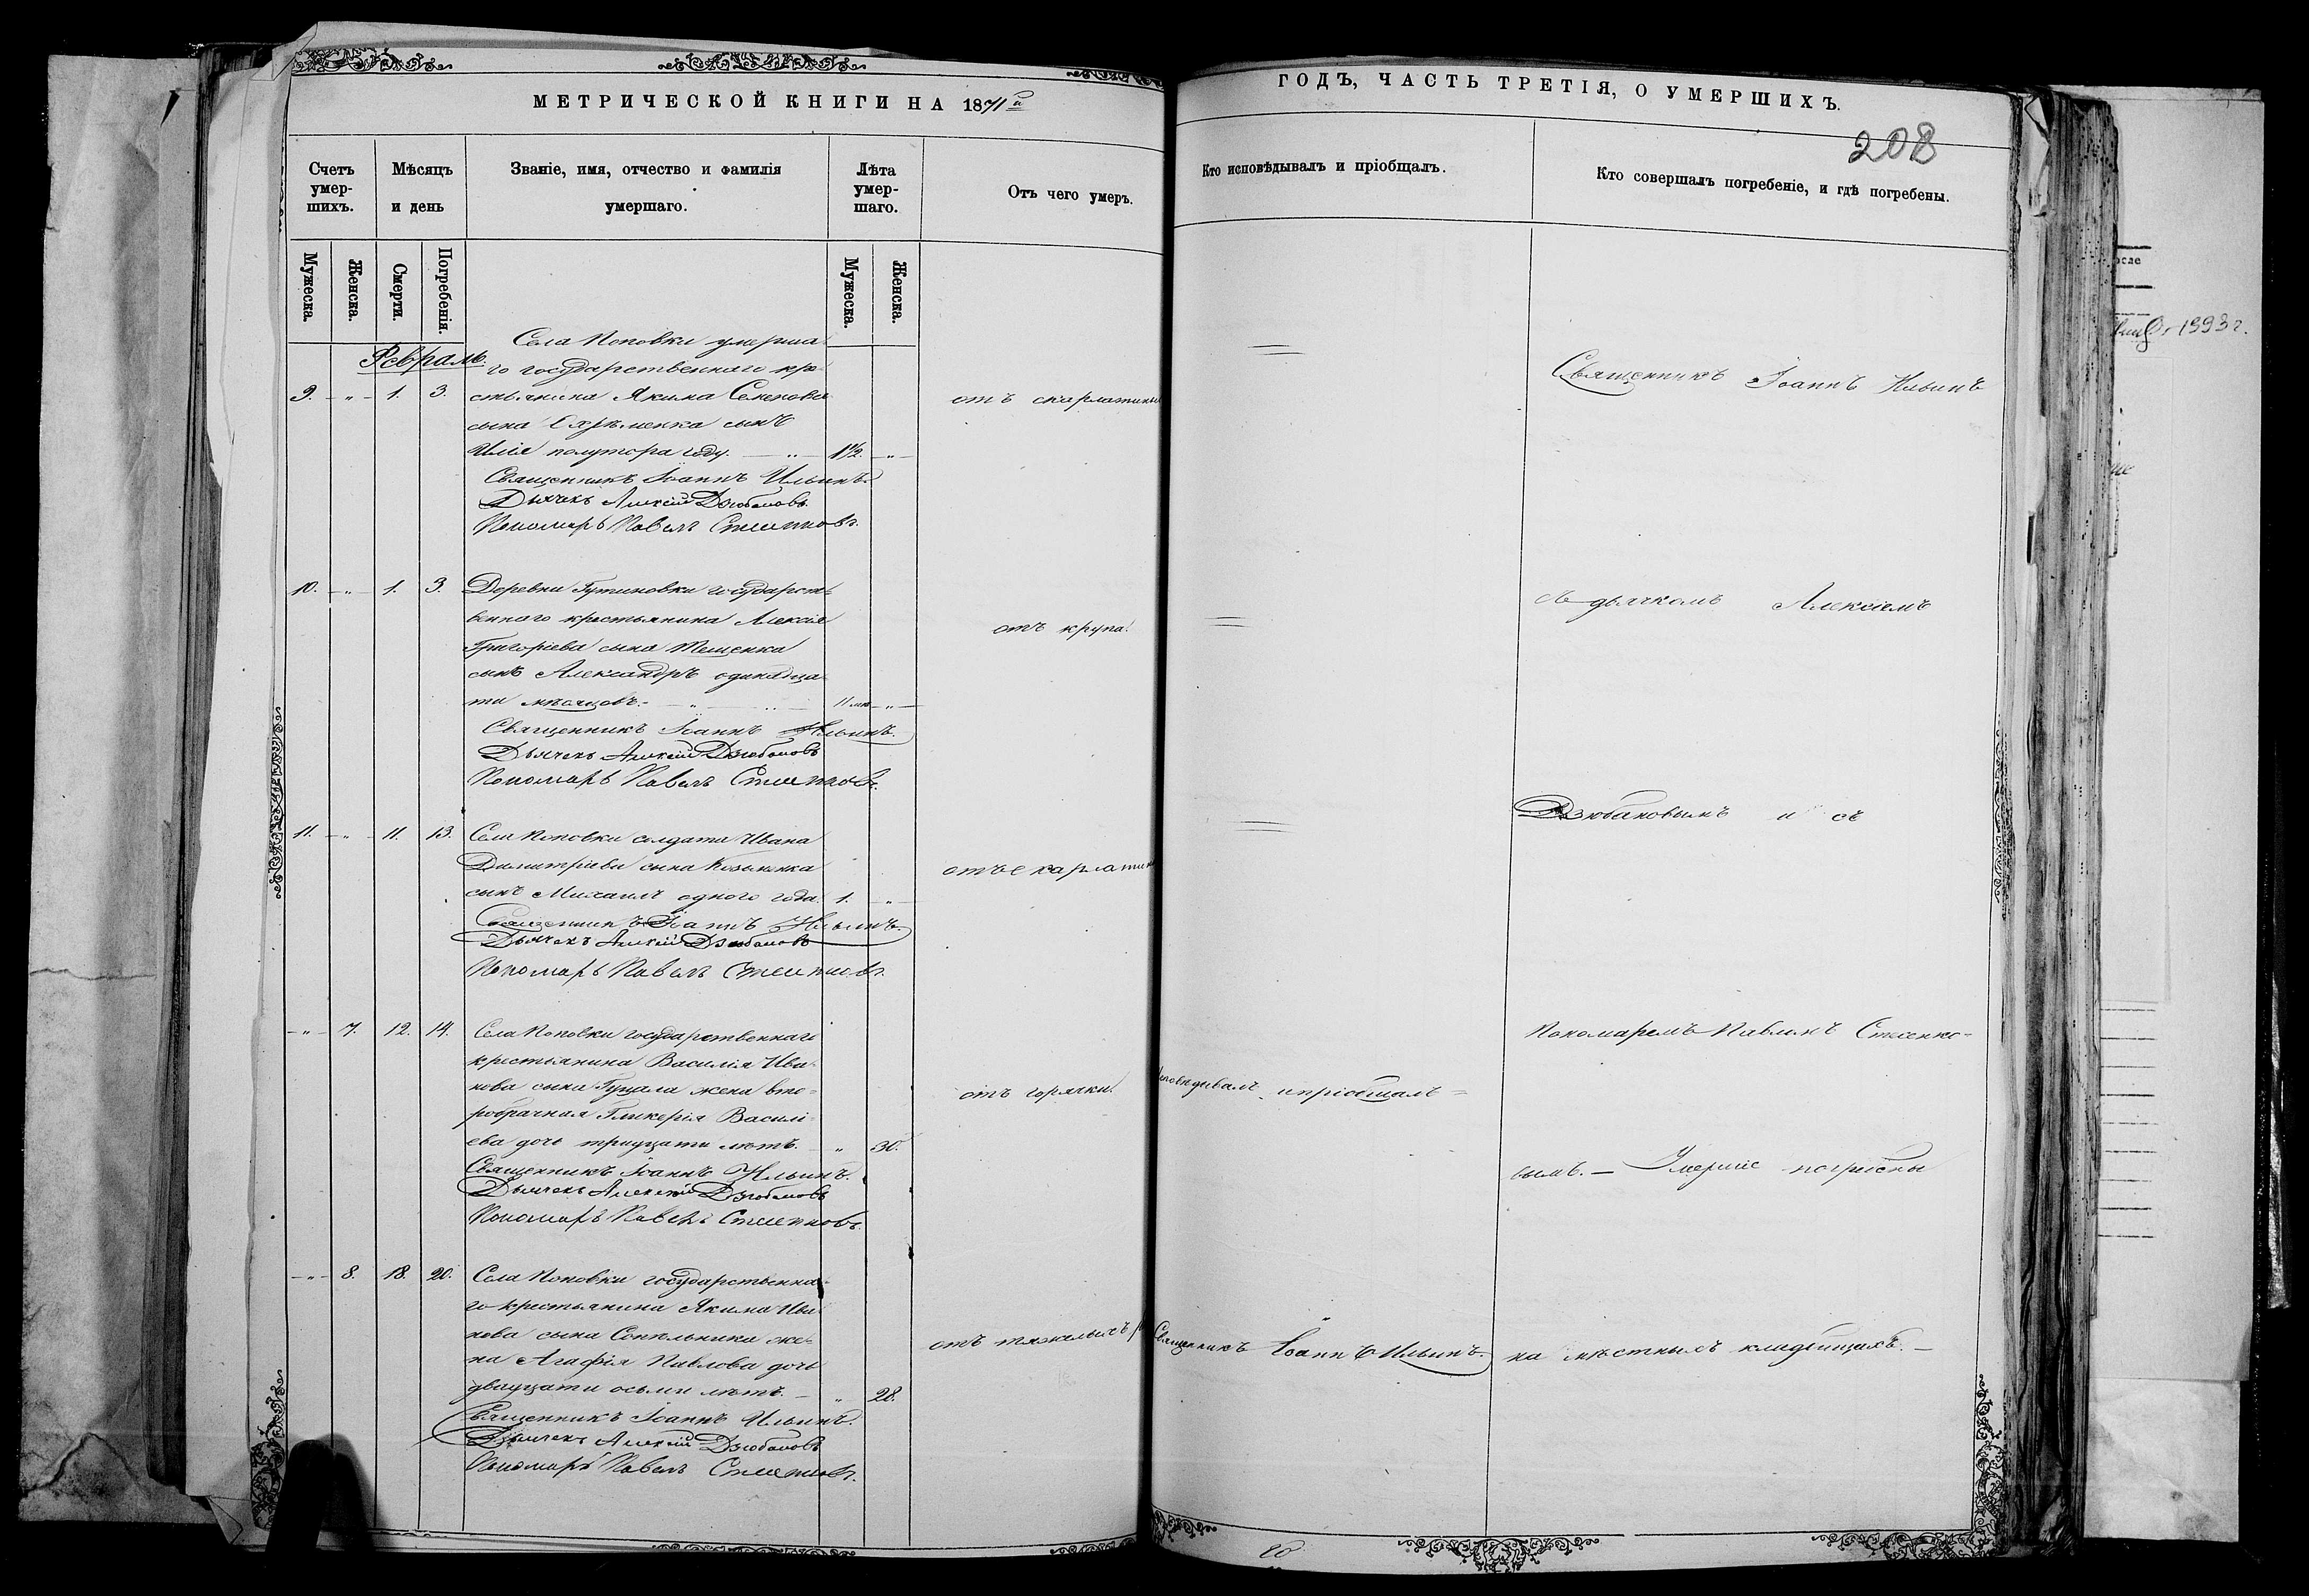 МЕТРИЧЕСКОЙ КНИГИ НА 1871й
Счетъ умершихъ.
Мѣсяцъ и день
Званіе, имя, отчество и фамилія умершаго.
Лѣта умершаго.
Отъ чего умеръ.
Мужеска.
Женска.
Смерти.
Погребенія.
Мужеска.
Женска.
Февраль.
Села Поповки умерша-
го государственнаго кре-
9. " 1. 3. стьянина Якима Семенова
отъ скарлатины
сына Охрѣменка сынъ
Илія полутора году. " 1½. "
Священникъ Іоаннъ Ильинъ.
Дьячекъ Алексій Дзюбановъ
Пономарь Павелъ Стеенковъ.
10. " 1. 3. Деревни Гутиновки государст-
веннаго крестьянина Алексія
отъ крупа.
Григоріева сына Тещенка
сынъ Александръ одинадца-
ти мѣсяцовъ. " 11 мѣ "
Священникъ Іоаннъ Ильинъ.
Дьячекъ Алексій Дзюбановъ
Пономарь Павелъ Стеенковъ.
11. " 11. 13. Села Поповки солдата Ивана
Димитріева сына Козьменка
отъ скарлатин
сынъ Михаилъ одного года. 1. "
Священникъ Іоаннъ Ильинъ.
Дьячекъ Алексій Дзюбановъ
Пономарь Павелъ Стеенковъ.
" 7. 12. 14. Села Поповки государственнаго
крестьянина Василія Ива-
нова сына Гуцала жена вто-
отъ горячки.
робрачная Гликерія Василі-
ева дочь тридцати лѣтъ. " 30.
Священникъ Іоаннъ Ильинъ.
Дьячекъ Алексій Дзюбановъ
Пономарь Павелъ Стеенковъ.
" 8. 18. 20. Села Поповки государственна-
го крестьянина Якима Ива-
нова сына Сопельника же-
отъ тяжелыхъ р
на Агафія Павлова дочь
двадцати осьми лѣтъ. " 28.
Священникъ Іоаннъ Ильинъ.
Дьячекъ Алексій Дзюбановъ
Пономарь Павелъ Стеенковъ.
ГОДЪ, ЧАСТЬ ТРЕТІЯ, О УМЕРШИХЪ.
208
Кто исповѣдывалъ и пріобщалъ.
Кто совершалъ погребеніе, и гдѣ погребены.
Священникъ Іоаннъ Ильинъ
съ дьячкомъ Алексіемъ
Дзюбановымъ и съ
Пономаремъ Павломъ Стеенко-
исповѣдывалъ и пріобщалъ
вымъ. — Умершіе погребены
Священникъ Іоаннъ Ильинъ.
на мѣстныхъ кладбищахъ. —
1993 г.